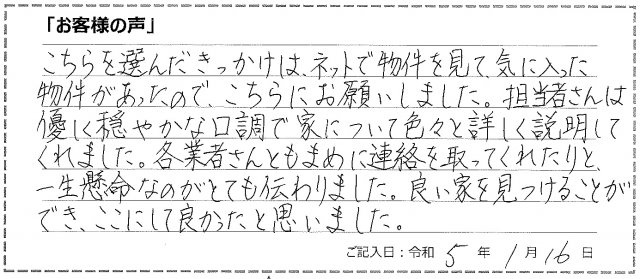 「お客様の声」
こちらを選んだきっかけは、ネットで物件を見て、気に入った
物件があったので、こちらにお願いしました。担当者さんは
優しく穏やかな口調で家について色々と詳しく説明して
くれました。各業者さんともまめに連絡を取ってくれたりと、
一生懸命なのがとても伝わりました。良い家を見つけることが
でき、ここにして良かったと思いました。
ご記入日：令和 5 年 1 月 16 日